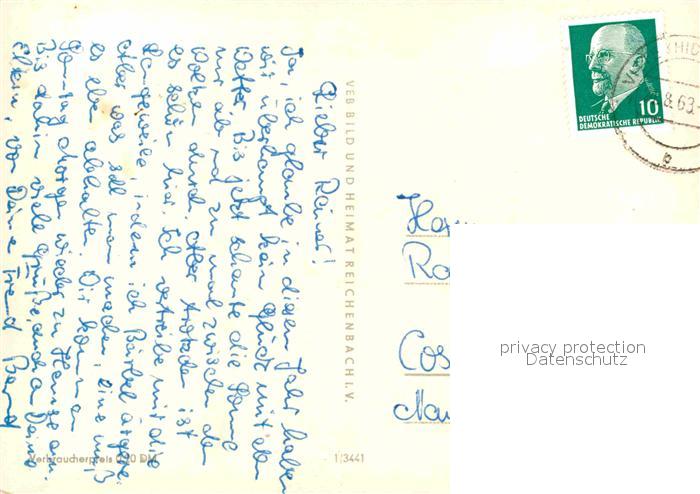 Lieber Rainer!
Ja, ich glaube, in diesem Jahr haben
wir überhaupt kein Glück mit dem
Wetter. Bis jetzt schaute die Sonne
nur ab und zu mal zwischen den
Wolken durch. Aber trotzdem ist
es schön hier. Ich vertreibe mir die
Langeweile, indem ich Bärbel ärgere.
Aber was soll man machen, eine muß
es eben abhalten. Wir kommen
Sonntag Morgen wieder zu Hause an.
Bis dahin viele Grüße, auch an Deine
Eltern, von Deinem Freund Bernd
VEB BILD UND HEIMAT REICHENBACH I. V.
Verbraucherpreis 0,20 DM
1/3441
DEUTSCHE
DEMOKRATISCHE REPUBLIK
10
8.63
b
Herrn
Ra
Cos
privacy protection
Datenschutz